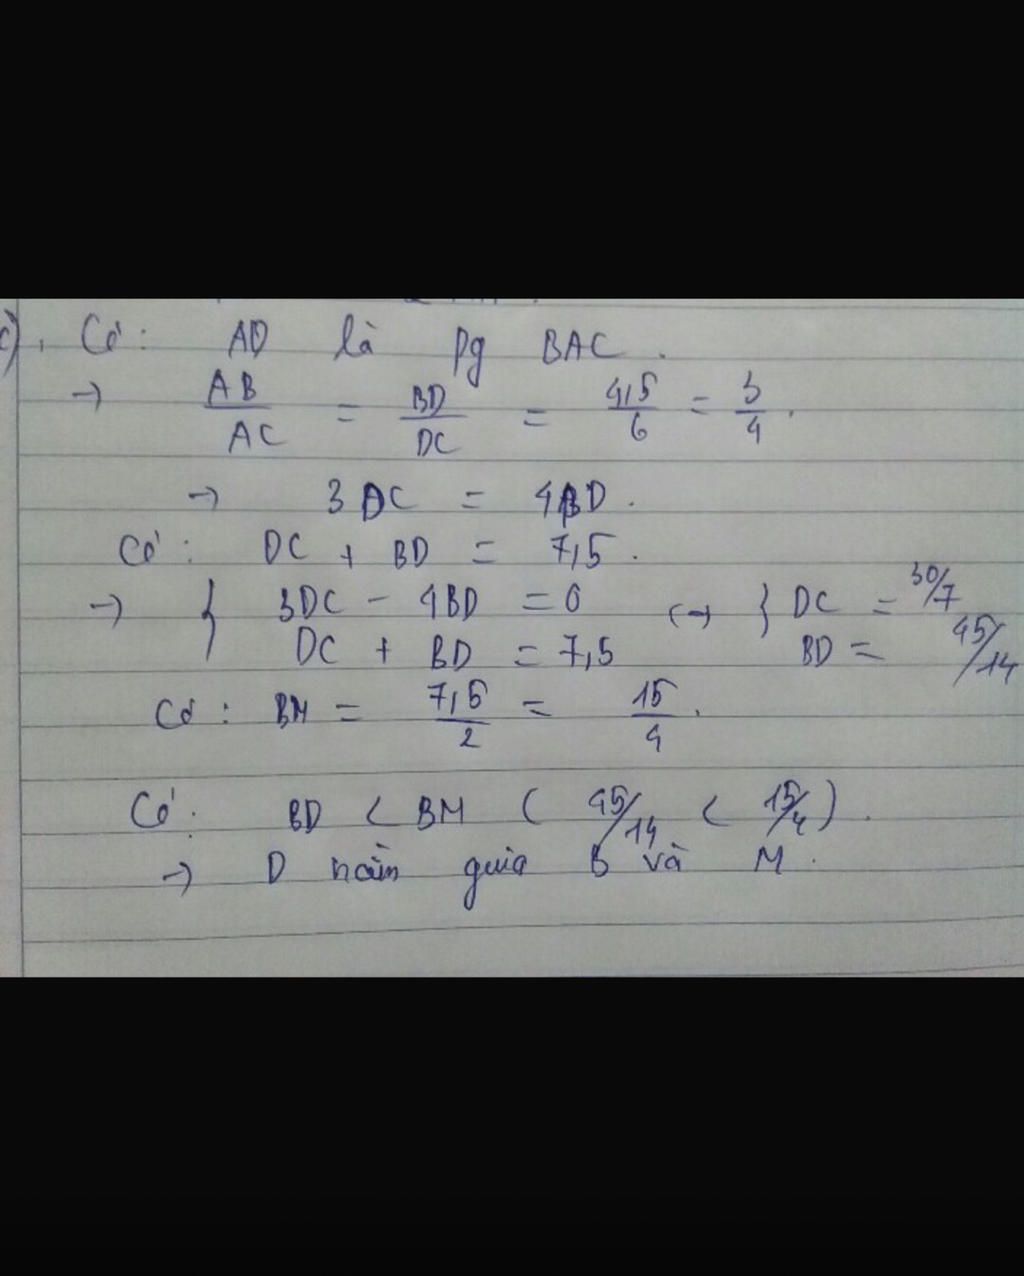 c), Có: AD là pg BAC.
→ AB/AC = BD/DC = 4,5/6 = 3/4.
→ 3DC = 4BD.
Có: DC + BD = 7,5.
→ { 3DC - 4BD = 0 (→ } DC = 30/7
DC + BD = 7,5 BD = 45/14
Có: BM = 7,5/2 = 15/4.
Có: BD < BM ( 45/14 < 15/4 ).
→ D nằm giữa B và M.